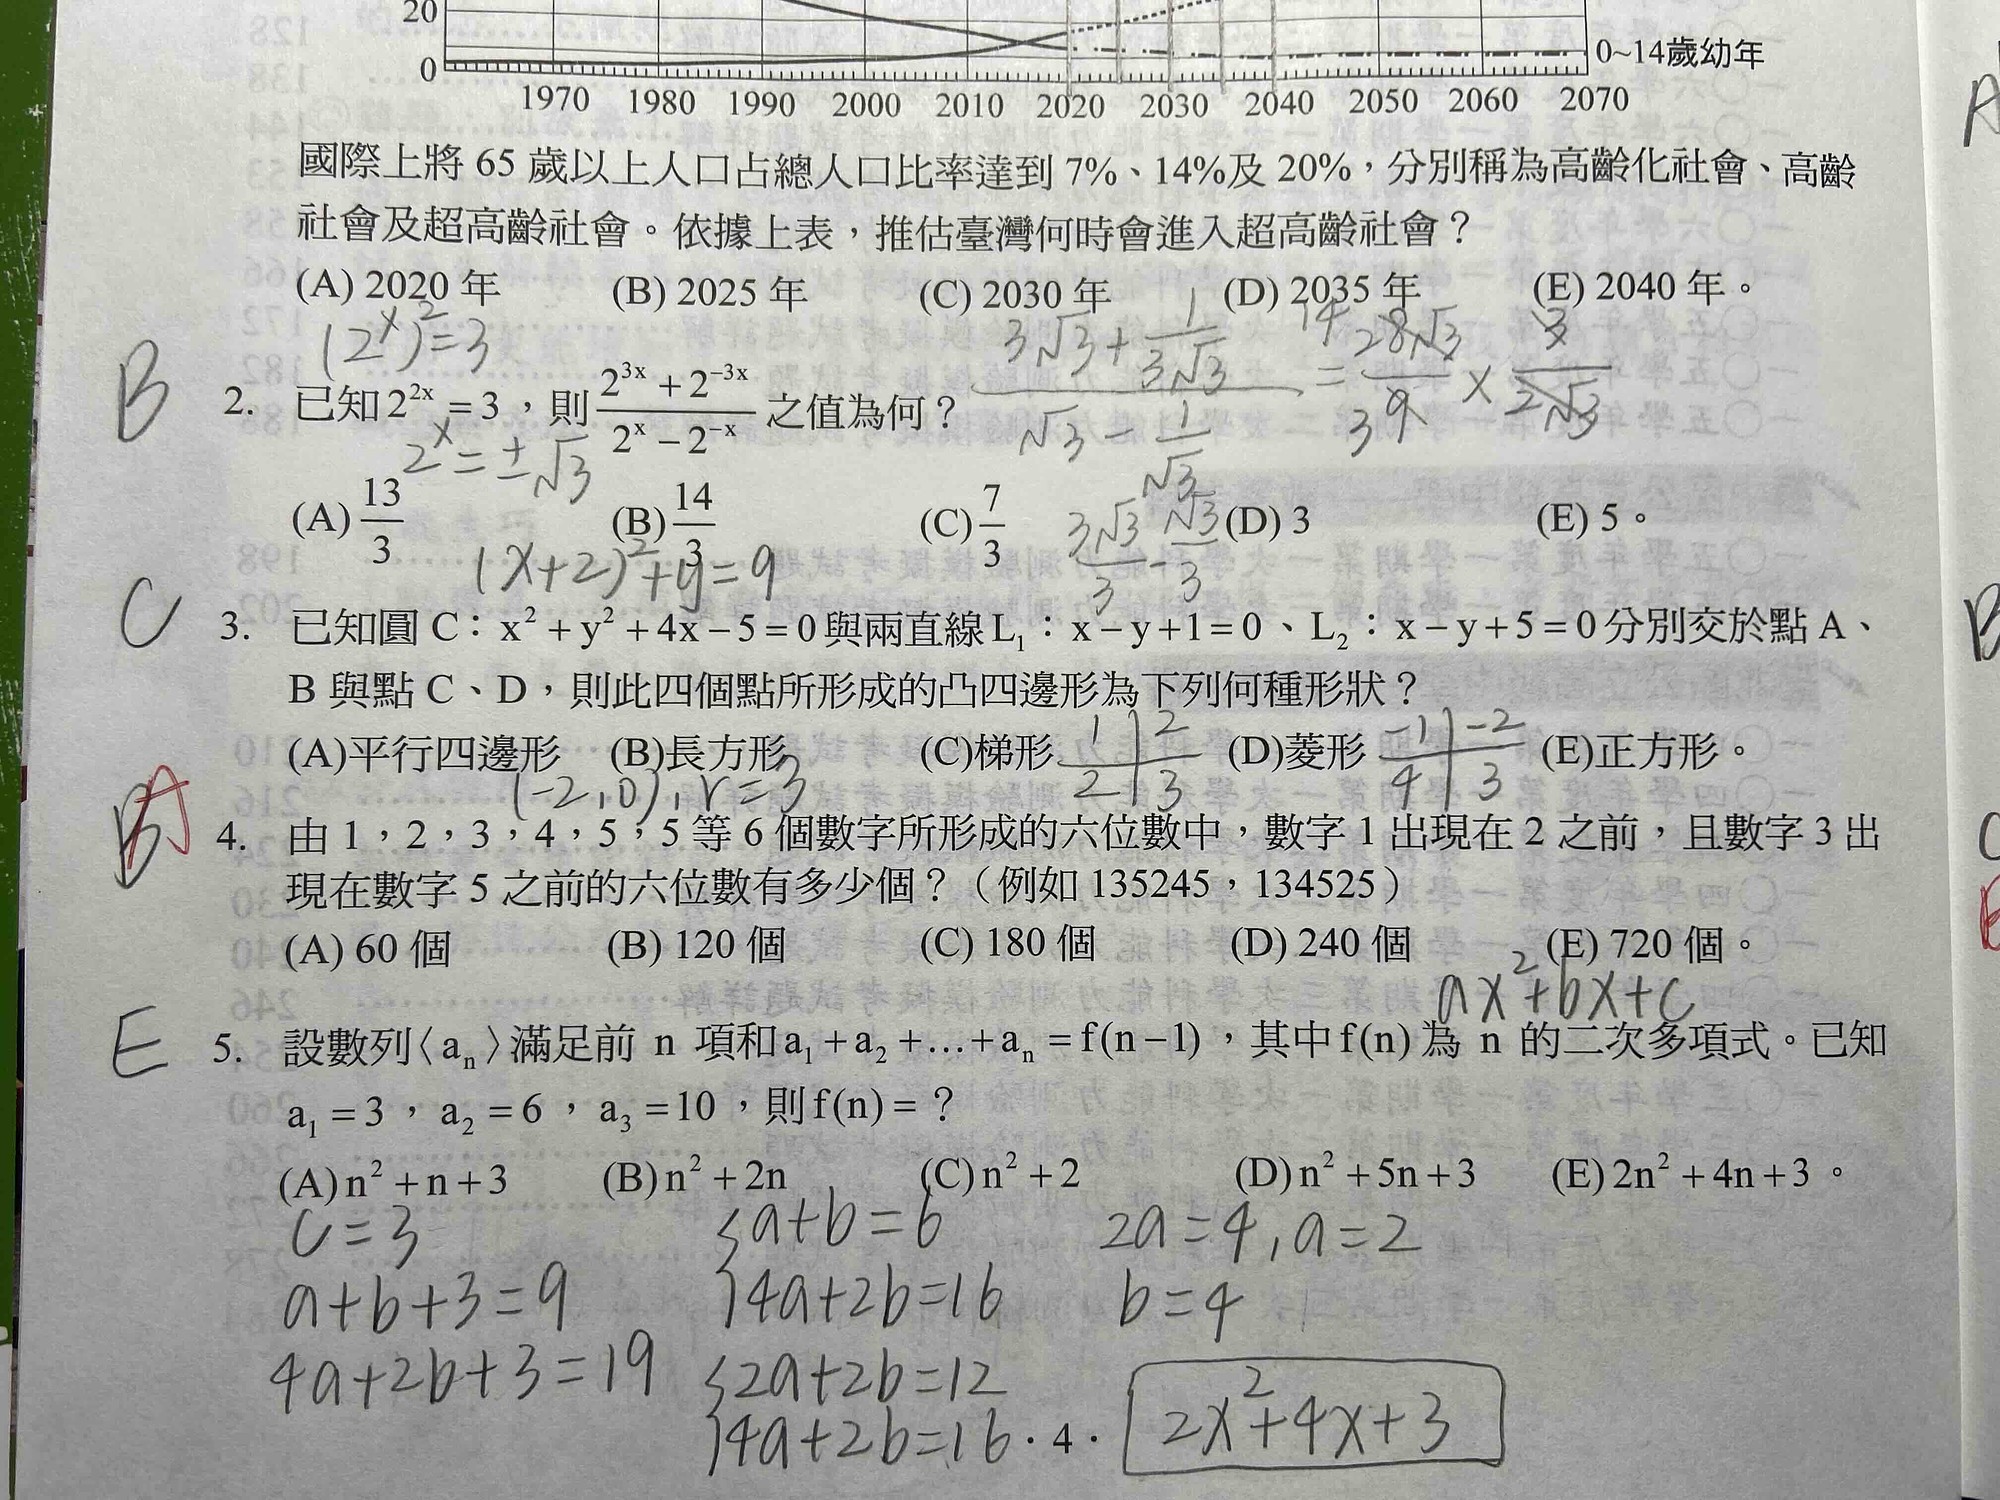 20
0
0~14歲幼年
1970 1980 1990 2000 2010 2020 2030 2040 2050 2060 2070
國際上將 65 歲以上人口占總人口比率達到 7%、14%及 20%，分別稱為高齡化社會、高齡
社會及超高齡社會。依據上表，推估臺灣何時會進入超高齡社會？
(A) 2020 年 (B) 2025 年 (C) 2030 年 (D) 2035 年 (E) 2040 年。
(2^x)^2=3
B
2. 已知 2^{2x} = 3，則 \frac{2^{3x} + 2^{-3x}}{2^x − 2^{-x}} 之值為何？
\frac{3√3 + \frac{1}{3√3}}{√3 − \frac{1}{√3}} = \frac{28√3}{9} × \frac{3}{2√3}
14
3
2^x = ±√3
(A) 13/3 (B) 14/3 (C) 7/3 (D) 3 (E) 5。
\frac{3√3}{3} − \frac{√3}{3}
(x+2)^2+y=9
C
3. 已知圓 C：x² + y² + 4x − 5 = 0 與兩直線 L₁：x − y + 1 = 0、L₂：x − y + 5 = 0 分別交於點 A、
B 與點 C、D，則此四個點所形成的凸四邊形為下列何種形狀？
(A)平行四邊形 (B)長方形 (C)梯形 (D)菱形 (E)正方形。
1 | 2
2 | 3
-1 | -2
4 | 3
(-2,0), r=3
B A
4. 由 1，2，3，4，5，5 等 6 個數字所形成的六位數中，數字 1 出現在 2 之前，且數字 3 出
現在數字 5 之前的六位數有多少個？（例如 135245，134525）
(A) 60 個 (B) 120 個 (C) 180 個 (D) 240 個 (E) 720 個。
ax²+bx+c
E
5. 設數列〈aₙ〉滿足前 n 項和 a₁ + a₂ + … + aₙ = f(n − 1)，其中 f(n) 為 n 的二次多項式。已知
a₁ = 3，a₂ = 6，a₃ = 10，則 f(n) = ？
(A) n² + n + 3 (B) n² + 2n (C) n² + 2 (D) n² + 5n + 3 (E) 2n² + 4n + 3。
c=3 {a+b=6 2a=4, a=2
a+b+3=9 4a+2b=16 b=4
4a+2b+3=19 {2a+2b=12
4a+2b=16 2x²+4x+3
· 4 ·